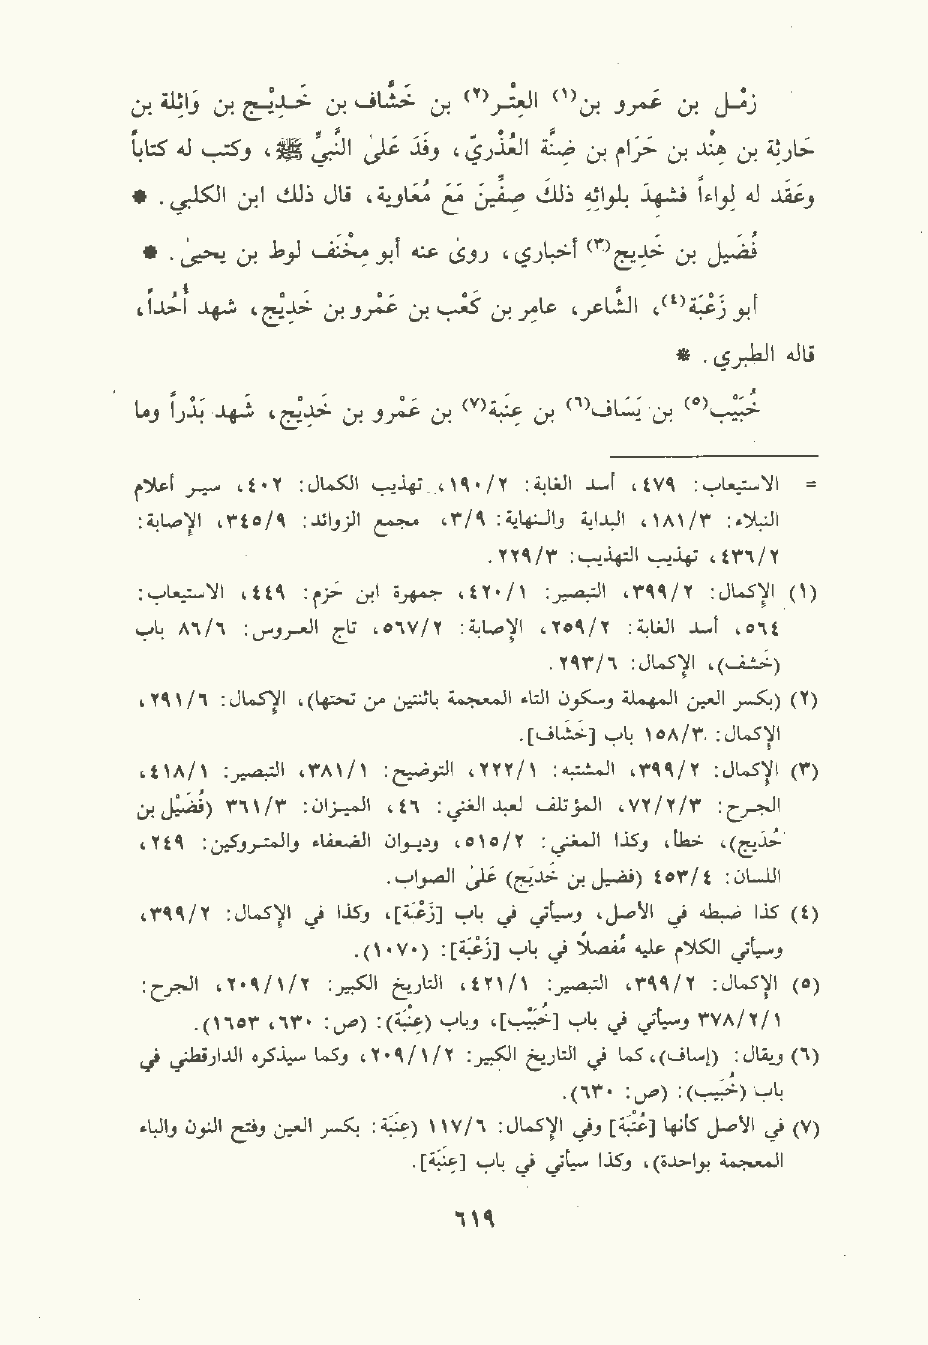 زمْـل بن عَمرو بن(١) العِتْـر(٢) بن خَشّاف بن خَـدِيْـج بن وَاثِلة بن
حَارِثة بن هِنْد بن حَرَام بن ضِنَّة العُذْرِيّ، وفَدَ عَلىٰ النَّبيِّ ﷺ، وكتب له كتاباً
وعَقَد له لِواءاً فشهِد بلوائِهِ ذلك صِفِّينَ مَعَ مُعَاوِيَة، قال ذلك ابن الكلبي. *
فُضَيل بن خَدِيج(٣) أخباري، روىٰ عنه أبو مِخْنَف لوط بن يحيىٰ. *
أبو زَعْبَة(٤)، الشّاعر، عامِر بن كَعْب بن عَمْرو بن خَدِيْج، شهد أُحُداً،
قاله الطبري. *
خُبَيْب(٥) بن يَسَاف(٦) بن عِنَبة(٧) بن عَمْرو بن خَدِيْج، شَهد بَدْراً وما
= الاستيعاب: ٤٧٩، أسد الغابة: ١٩٠/٢، تهذيب الكمال: ٤٠٢، سير أعلام
النبلاء: ١٨١/٣، البداية والنهاية: ٣/٩، مجمع الزوائد: ٣٤٥/٩، الإصابة:
٤٣٦/٢، تهذيب التهذيب: ٢٢٩/٣.
(١) الإكمال: ٣٩٩/٢، التبصير: ٤٢٠/١، جمهرة ابن حَزم: ٤٤٩، الاستيعاب:
٥٦٤، أسد الغابة: ٢٥٩/٢، الإصابة: ٥٦٧/٢، تاج العروس: ٨٦/٦ باب
(خَشف)، الإكمال: ٢٩٣/٦.
(٢) (بكسر العين المهملة وسكون التاء المعجمة باثنتين من تحتها)، الإكمال: ٢٩١/٦،
الإكمال: ١٥٨/٣ باب [خَشَاف].
(٣) الإكمال: ٣٩٩/٢، المشتبه: ٢٢٢/١، التوضيح: ٣٨١/١، التبصير: ٤١٨/١،
الجرح: ٧٢/٢/٣، المؤتلف لعبد الغني: ٤٦، الميزان: ٣٦١/٣ (فُضَيْل بن
خُدَيج)، خطأ، وكذا المغني: ٥١٥/٢، وديوان الضعفاء والمتروكين: ٢٤٩،
اللسان: ٤٥٣/٤ (فضيل بن خَدِيج) عَلىٰ الصواب.
(٤) كذا ضبطه في الأصل، وسيأتي في باب [زَعْبَة]، وكذا في الإكمال: ٣٩٩/٢،
وسيأتي الكلام عليه مُفصلاً في باب [زَعْبَة]: (١٠٧٠).
(٥) الإكمال: ٣٩٩/٢، التبصير: ٤٢١/١، التاريخ الكبير: ٢٠٩/١/٢، الجرح:
٣٧٨/٢/١ وسيأتي في باب [خُبَيْب]، وباب (عِنَبَة): (ص: ٦٣٠، ١٦٥٣).
(٦) ويقال: (إساف)، كما في التاريخ الكبير: ٢٠٩/١/٢، وكما سيذكره الدارقطني في
باب (خُبَيب): (ص: ٦٣٠).
(٧) في الأصل كأنها [عُتْبَة] وفي الإكمال: ١١٧/٦ (عِنَبَة: بكسر العين وفتح النون والباء
المعجمة بواحدة)، وكذا سيأتي في باب [عِنَبَة].
٦١٩